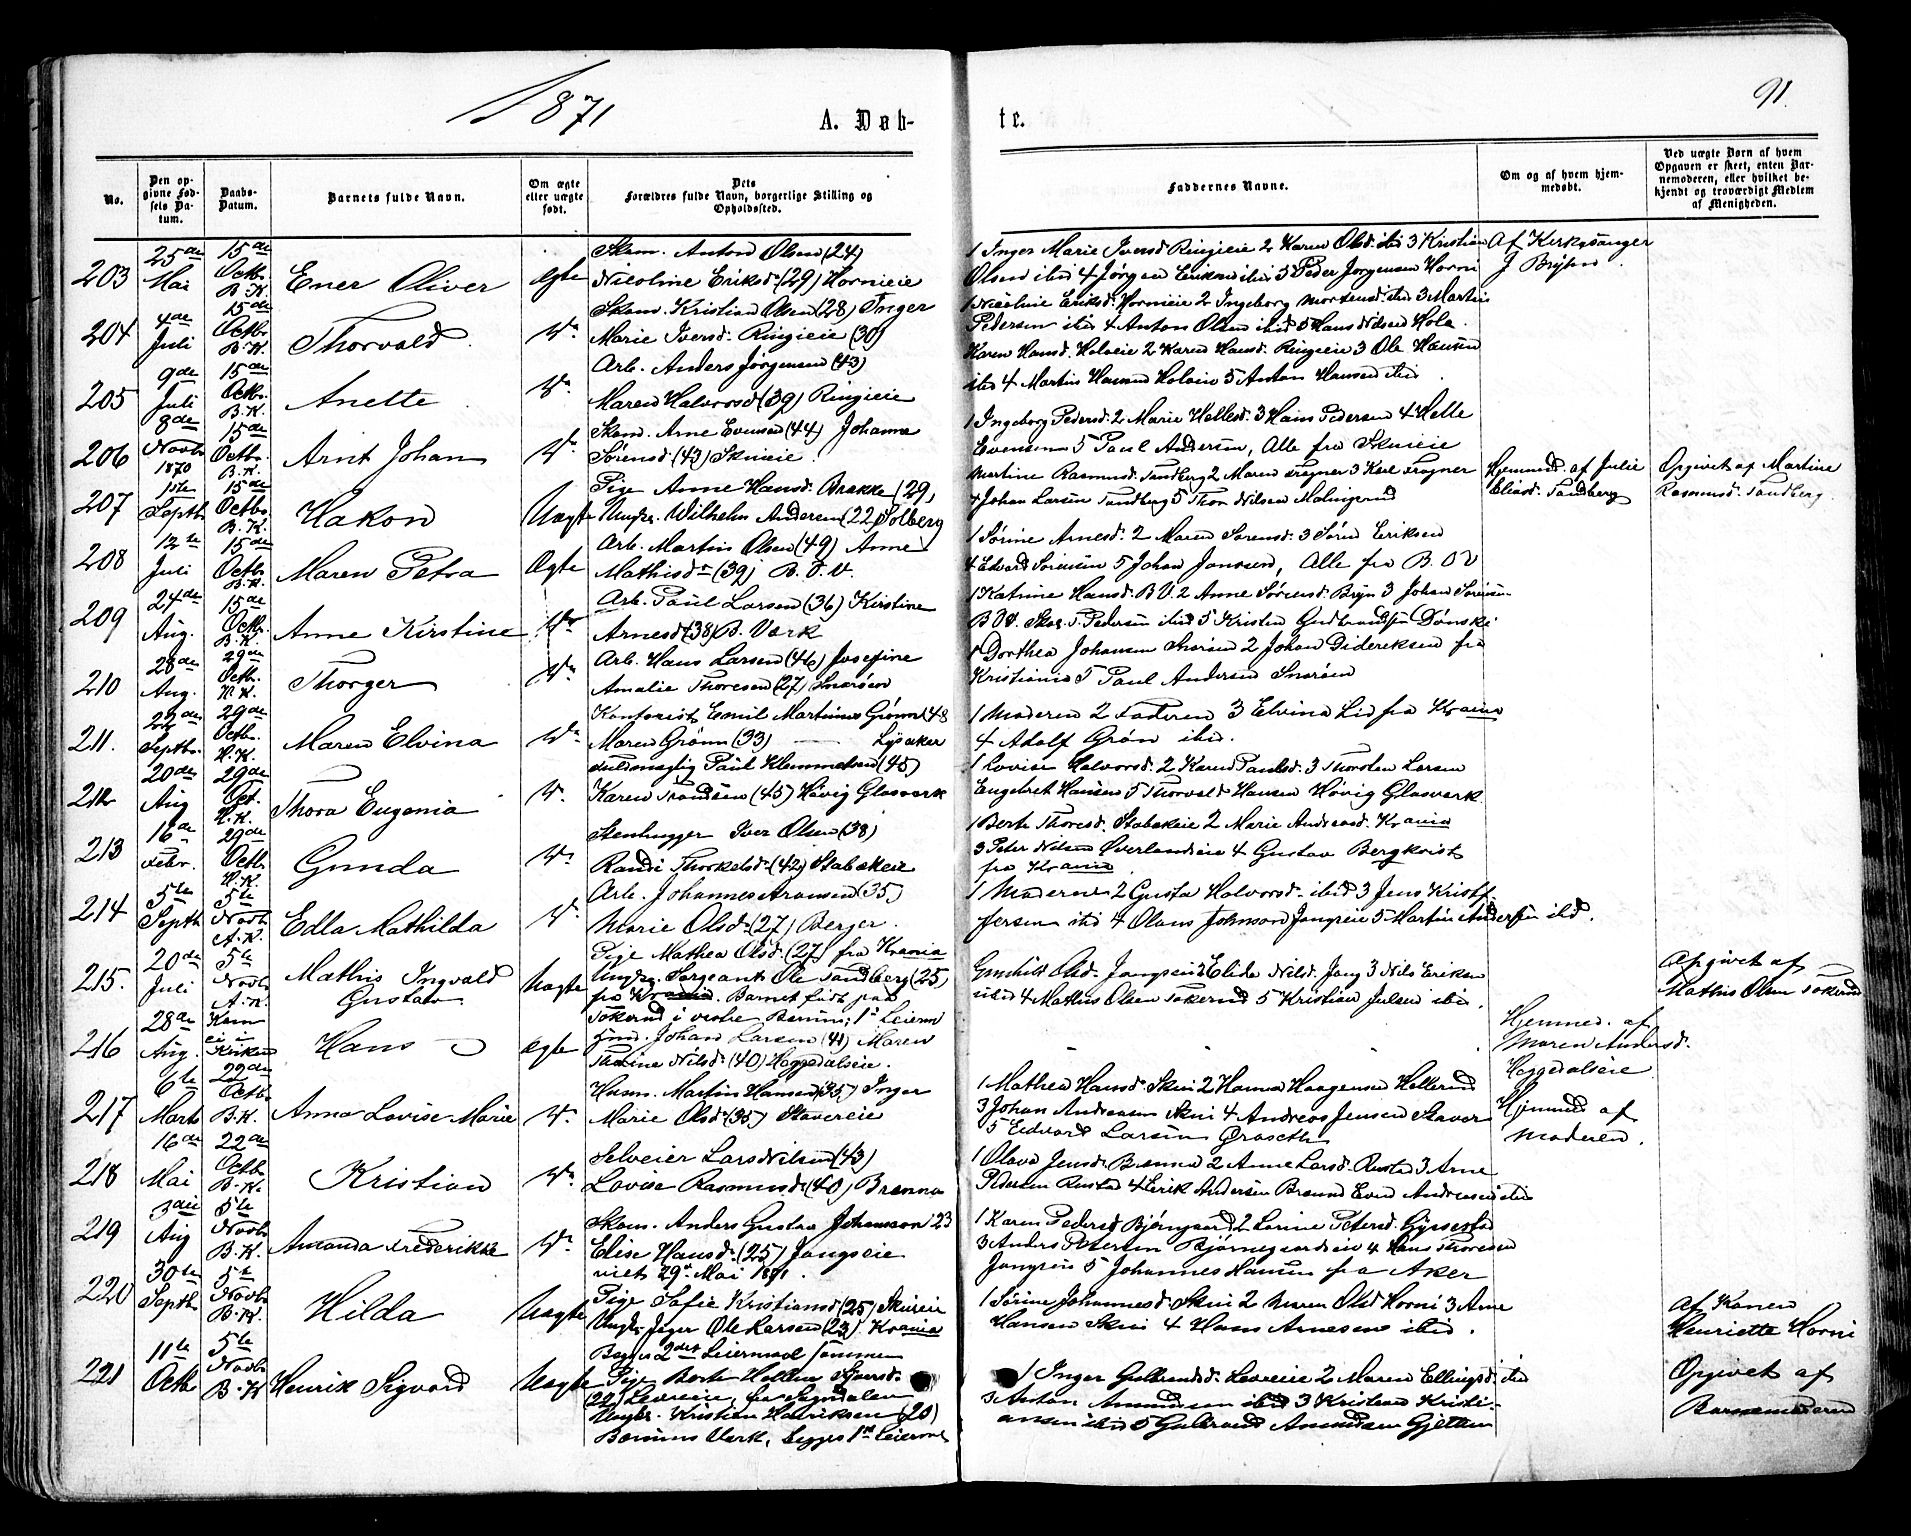 1871
A. Døb-
te.
91.
No.
Den op-
givne Fød-
sels Da-
tum.
Daabs-
Datum.
Barnets fulde Navn.
Om ægte
eller uægte
født.
Dets
Forældres fulde Navn, borgerlige Stilling og
Opholdssted.
Faddernes Navne.
Om og af hvem hjem-
medøbt.
Ved uægte Børn af hvem
Opgaven er skeet, enten Bar-
nemoderen, eller hvilket be-
kjendt og troværdigt Medlem
af Menigheden.
203 25de Mai 15de Octbr. B.K. Ener Oliver ægte
Skom. Anton Olsen (24)
Nicoline Eriksd. (29) Hornieie
1 Inger Marie Iversd Ringieie 2 Karen Olsd. ibid 3 Kristian
Olsen ibid 4 Jørgen Eriksen ibid 5 Peder Jørgensen Horni
Af Kirkesanger
J Bryhn
204 4de Juli 15de Octbr. B.K. Thorvald Do
Skom. Kristian Olsen (28) Inger
Marie Iversd. Ringieie (30)
1 Nicoline Eriksd. Hornieie 2 Ingeborg Mortensd. ibid 3 Martin
Pedersen ibid 4 Anton Olsen ibid 5 Hans Nilsen Hole.
205 9de Juli 15de Octbr. B.K. Anette Do
Arb. Anders Jørgensen (43)
Maren Halvorsd (39) Ringieie
Karen Hansd. Holeie 2 Karen Hansd. Ringieie 3 Ole Hansen
ibid 4 Martin Hansen Holeie 5 Anton Hansen ibid
206 8de Novbr 1870 15de Octbr. B.K. Arnt Johan Do
Skom. Arne Evensen (44) Johanne
Sørensd. (43) Skuieie.
1 Ingeborg Pedersd. 2 Marie Hellesd. 3 Hans Pedersen 4 Helle
Evensen 5 Paul Andersen, Alle fra Skuieie
207 1ste Septbr 15de Octbr. B.K. Hakon Uægte
Pige Anne Hansd. Brakke (29)
Ungkr. Wilhelm Andersen (22) Solberg
Martine Rasmusd. Tandberg 2 Maren Frogner 3 Karl Frogner
4 Johan Larsen Tandberg 5 Thor Nilsen
Hjemmed. af Julie
Eliasd. Tandberg
Opgivet af Martine
Rasmusd. Tandberg.
208 12te Juli 15de Octbr. B.K. Maren Petra Ægte
Arb. Martin Olsen (49) Anne
Mathisdr (39) B. V.
1 Sørine Arnesd. 2 Maren Sørensd. 3 Søren Eriksen
4 Edvard Sørensen 5 Johan Jonssen, Alle fra B. V
209 24de Aug. 15de Octbr. B.K. Anne Kirstine Do
Arb. Paul Larsen (36) Kirstine
Arnesd (38) B. Værk
1 Katrine Hansd. B V. 2 Anne Sørensd. Bryn 3 Johan Sørensen
Pedersen ibid 5 Kristen Gudbrandsen Dønski
210 28de Aug. 29de Octbr. H.K. Thorger Do
Arb. Hans Larsen (46) Josefine
Amalie Thoresen (27) Snarøen
1 Dorthea Johansen Snarøen 2 Johan Dideriksen fra
Kristiania 5 Paul Andersen Snarøen
211. 22de Septbr. 29de Octbr. H.K. Maren Elvina Do
Kontorist Emil Martinus Grønn (48
Maren Grønn (33) Lysaker
1 Moderen 2 Faderen 3 Elvina Lid fra Krania
4 Adolf Grøn ibid.
212 20de Aug 29de Oct. H.K. Thora Eugenia Do
Fuldmægtig Paul Klemmetsen (45)
Karen Trondsen (45) Høvig Glasværk
1 Lovise Halvorsd. 2 Karen Paulsd. 3 Thorsten Larsen
Engebret Hansen 5 Thorvald Hansen Høvig Glasværk.
213 16de Febr. 29de Octbr. H.K. Gunda Do
Stenhugger Iver Olsen (38)
Randi Thorkelsd. (42) Stabekeie
1 Berte Thoresd. Stabekeie 2 Marie Andreasd. Krania
3 Peter Nilsen Øverlandeie 4 Gustav Bergkvist
fra Krania
214 5te Septbr 5te Novbr A.K. Edla Mathilda Do
Arb. Johannes Aronsen (35)
Marie Olsd. (27) Berger.
1 Moderen 2 Gusta Halvorsd. ibid 3 Jens Kristof
fersen ibid 4 Olaus Johnson Jongseie 5 Martin Andersen ibid.
215. 20de Juli 5te Novbr. A.K. Mathis Ingvald
Gustav Uægte
Pige Mathea Olsd. (27) fra Krania
Ungkr. Sergeant Ole Tandberg (25)
fra Krania. Barnet født paa
Tokerud i vestre Bærum; 1ste Leierm
Gunhild Olsd. Jongseie 2 Elida Nilsd. Jong 3 Nils Eriksen
ibid 4 Mathis Olsen Tokerud 5 Kristian Julsen ibid.
Opgivet af
Mathis Olsen Tokerud
216 28de Aug. Kom ei i Kirken Hans ægte
Johan Larsen (41) Maren
Thorine Nilsd. (40) Haggedalseie.
Hjemmed. af
Maren Andersd.
Haggedalseie
217 6te Marts 22de Octbr. B.K. Anna Lovise Marie Do
Husm. Martin Hansen (35) Inger
Marie Olsd (35) Stavereie
1 Mathea Hansd. Skui 2 Hanna Haagensen Hellerud
3 Johan Andreasen Skui 4 Andreas Jensen Staver
5 Edvard Larsen Græseth
Hjemmed af
Moderen.
218 16de Mai 22de Octbr. B.K. Kristian Do
Selveier Lars Nilsen (43)
Lovise Rasmusd. (40) Brenna
1 Olava Jensd. Brenna 2 Anne Larsd. Rustad 3 Arne
Pedersen Rustad 4 Erik Andersen Brenna Even Andreasen ibid
219 3die Aug 5te Novbr B.K. Amanda Frederikke Do
Skom. Anders Gustav Johansson 23
Elise Hansd. (25) Jongseie
viet 29de Mai 1871.
1 Karen Pedersd Bjørnegaard 2 Lovine Petersd. Gjessestad
3 Anders Petersen Bjørnegaardseie 4 Hans Thoresen
Jongseie 5 Johannes Hansen fra Aker
220 30te Septbr 5te Novbr. B.K. Hilda Uægte
Pige Sofie Kristiansd (25) Skuieie
Ungkr. Jæger Ole Larsen (23) Krania
Begges 2det Leiermaal sammen
1 Sørine Johannesd. Skui 2 Maren Olsd Horni 3 Arne
Hansen Skui 4 Hans Arnesen ibid.
Af Konen
Henriette Horni
221 11te Octbr 5te Novbr. B.K. Henrik Sigvard Uægte
Pige Berte Helene Sjversd.
(22) Levreeie, fra Sigdalen
Ungkr. Kristian Henriksen (20)
Bærums Værk, begges 1ste Leiermaal
1 Inger Gulbrandsd. Levreeie 2 Maren Ellingsd. ibid
3 Anton Amundsen ibid 3 Kristian Kristi-
ansen ibid 5 Gulbrand Amundsen Gjettum
Opgivet af
Barnemoderen